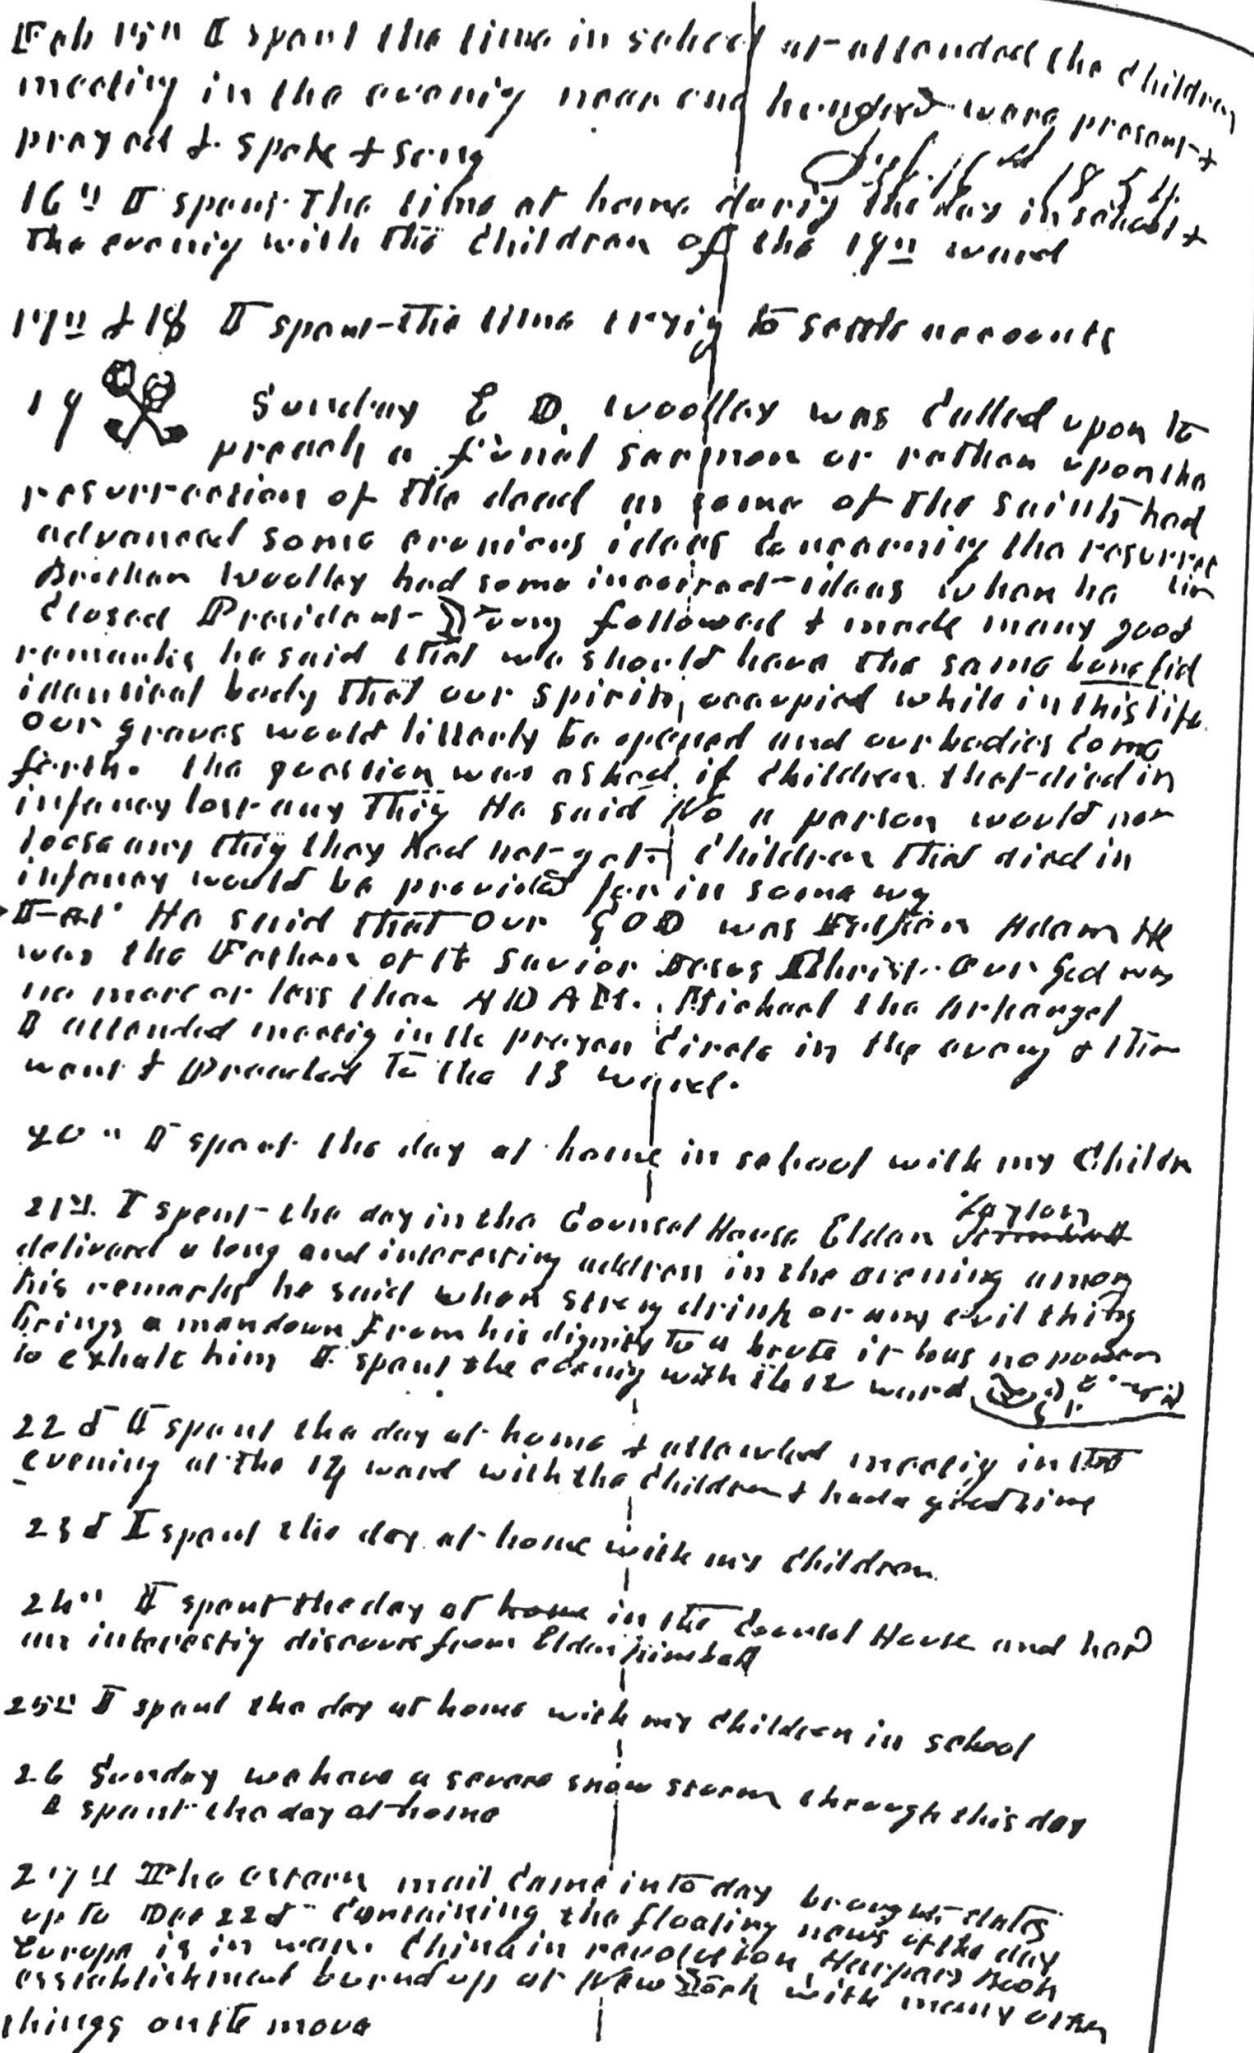 Feb 15" I spent the time in school at attended the children
meeting in the evenig near one hundred were present +
prayed & spoke + sung
Feb. 16th 1854.
16th I spent the time at home durig the day in school +
the evenig with the children of the 19th ward
17th & 18 I spent the time tryig to settle accounts
19 Sunday E D. Woolley was Called upon to
preach a funeral sermon or rather upon the
resurrection of the dead as some of the saints had
advanced some eronious ideas Concerning the resurrec
tion
Brother Woolley had some incorrect ideas when he
Closed President Young followed & made many good
remarks he said that we should have the same bonefid
identical body that our spirits occupied while in this life
our graves would litterly be opened and our bodies Come
forth. the question was asked if Children that died in
infancy lost any thig He said No a person would not
loose any thig they had not got Children that died in
infancy would be provided for in some wy
He said that Our GOD was Father Adam He
was the Father of the Savior Jesus Christ. Our God was
no more or less than ADAM. Michael the Arkangel
I attended meetig in the prayer Circle in the eveng & then
went & Preached to the 13 ward.
20" I spent the day at home in school with my Childn
Taylor
21st. I spent the day in the Counsel House Elder
delivered a long and interesting address in the evening among
his remarks he said when strong drink or any evil thing
brings a man down from his dignity to a brute it has no power
to exhalt him I spent the evenig with the 12 ward
22d I spent the day at home & attended meetig in the
evening at the 14 ward with the Children & had a good time
23d I spent the day at home with my Children
24" I spent the day at home in the Counsel House and had
an interestig discours from Elder Kimball
25th I spent the day at home with my Children in school
26 Sunday we have a severe snow storm through this day
I spent the day at home
27th The estern mail Came into day brought dates
up to Dec 22d Containing the floating news of the day
Europe is in war. China in revolution Harpers Book
essiablishment burnd up at New York with many other
things on the move